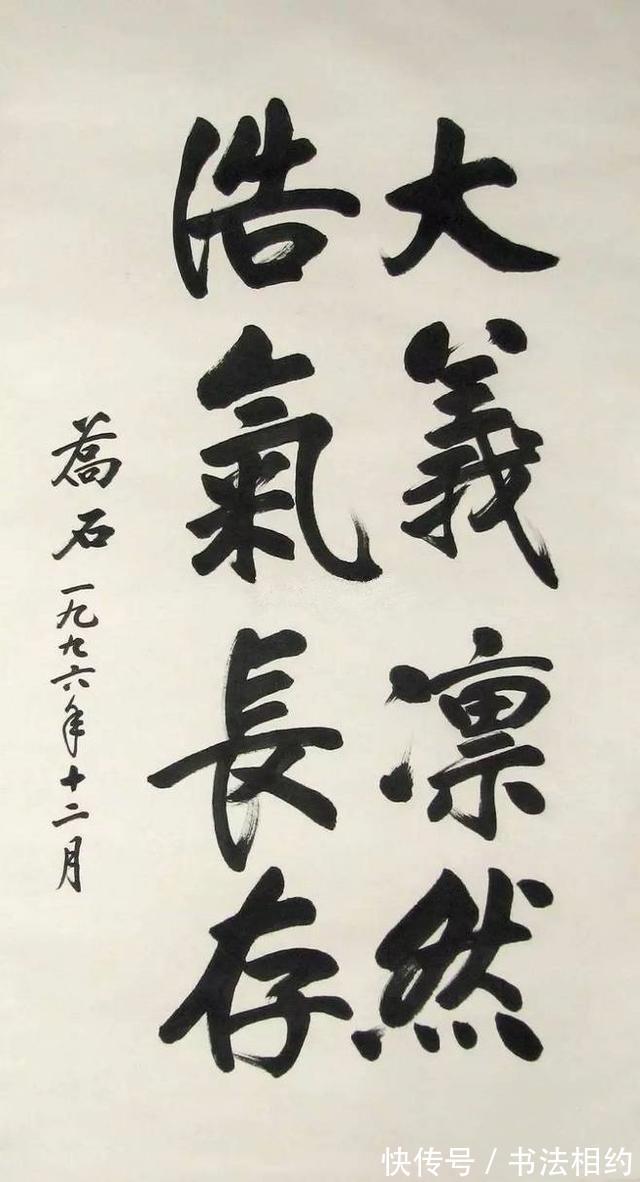 大義凛然
浩氣長存
喬石 一九九六年十二月
快传号 / 书法相约